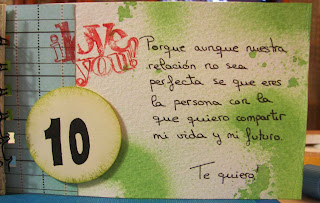 I LOVE
you!
10
Porque aunque nuestra
relación no sea
perfecta se que eres
la persona con la
que quiero compartir
mi vida y mi futuro.
Te quiero!